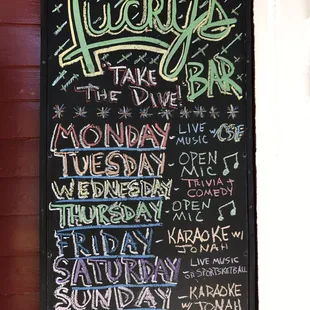 Lucky's
BAR
"TAKE
THE DIVE!"
MONDAY - LIVE MUSIC w/
TUESDAY - OPEN MIC
WEDNESDAY - TRIVIA + COMEDY
THURSDAY - OPEN MIC
FRIDAY - KARAOKE w/ JONAH
SATURDAY - LIVE MUSIC or SPORTSKETBALL
SUNDAY - KARAOKE w/ JONAH